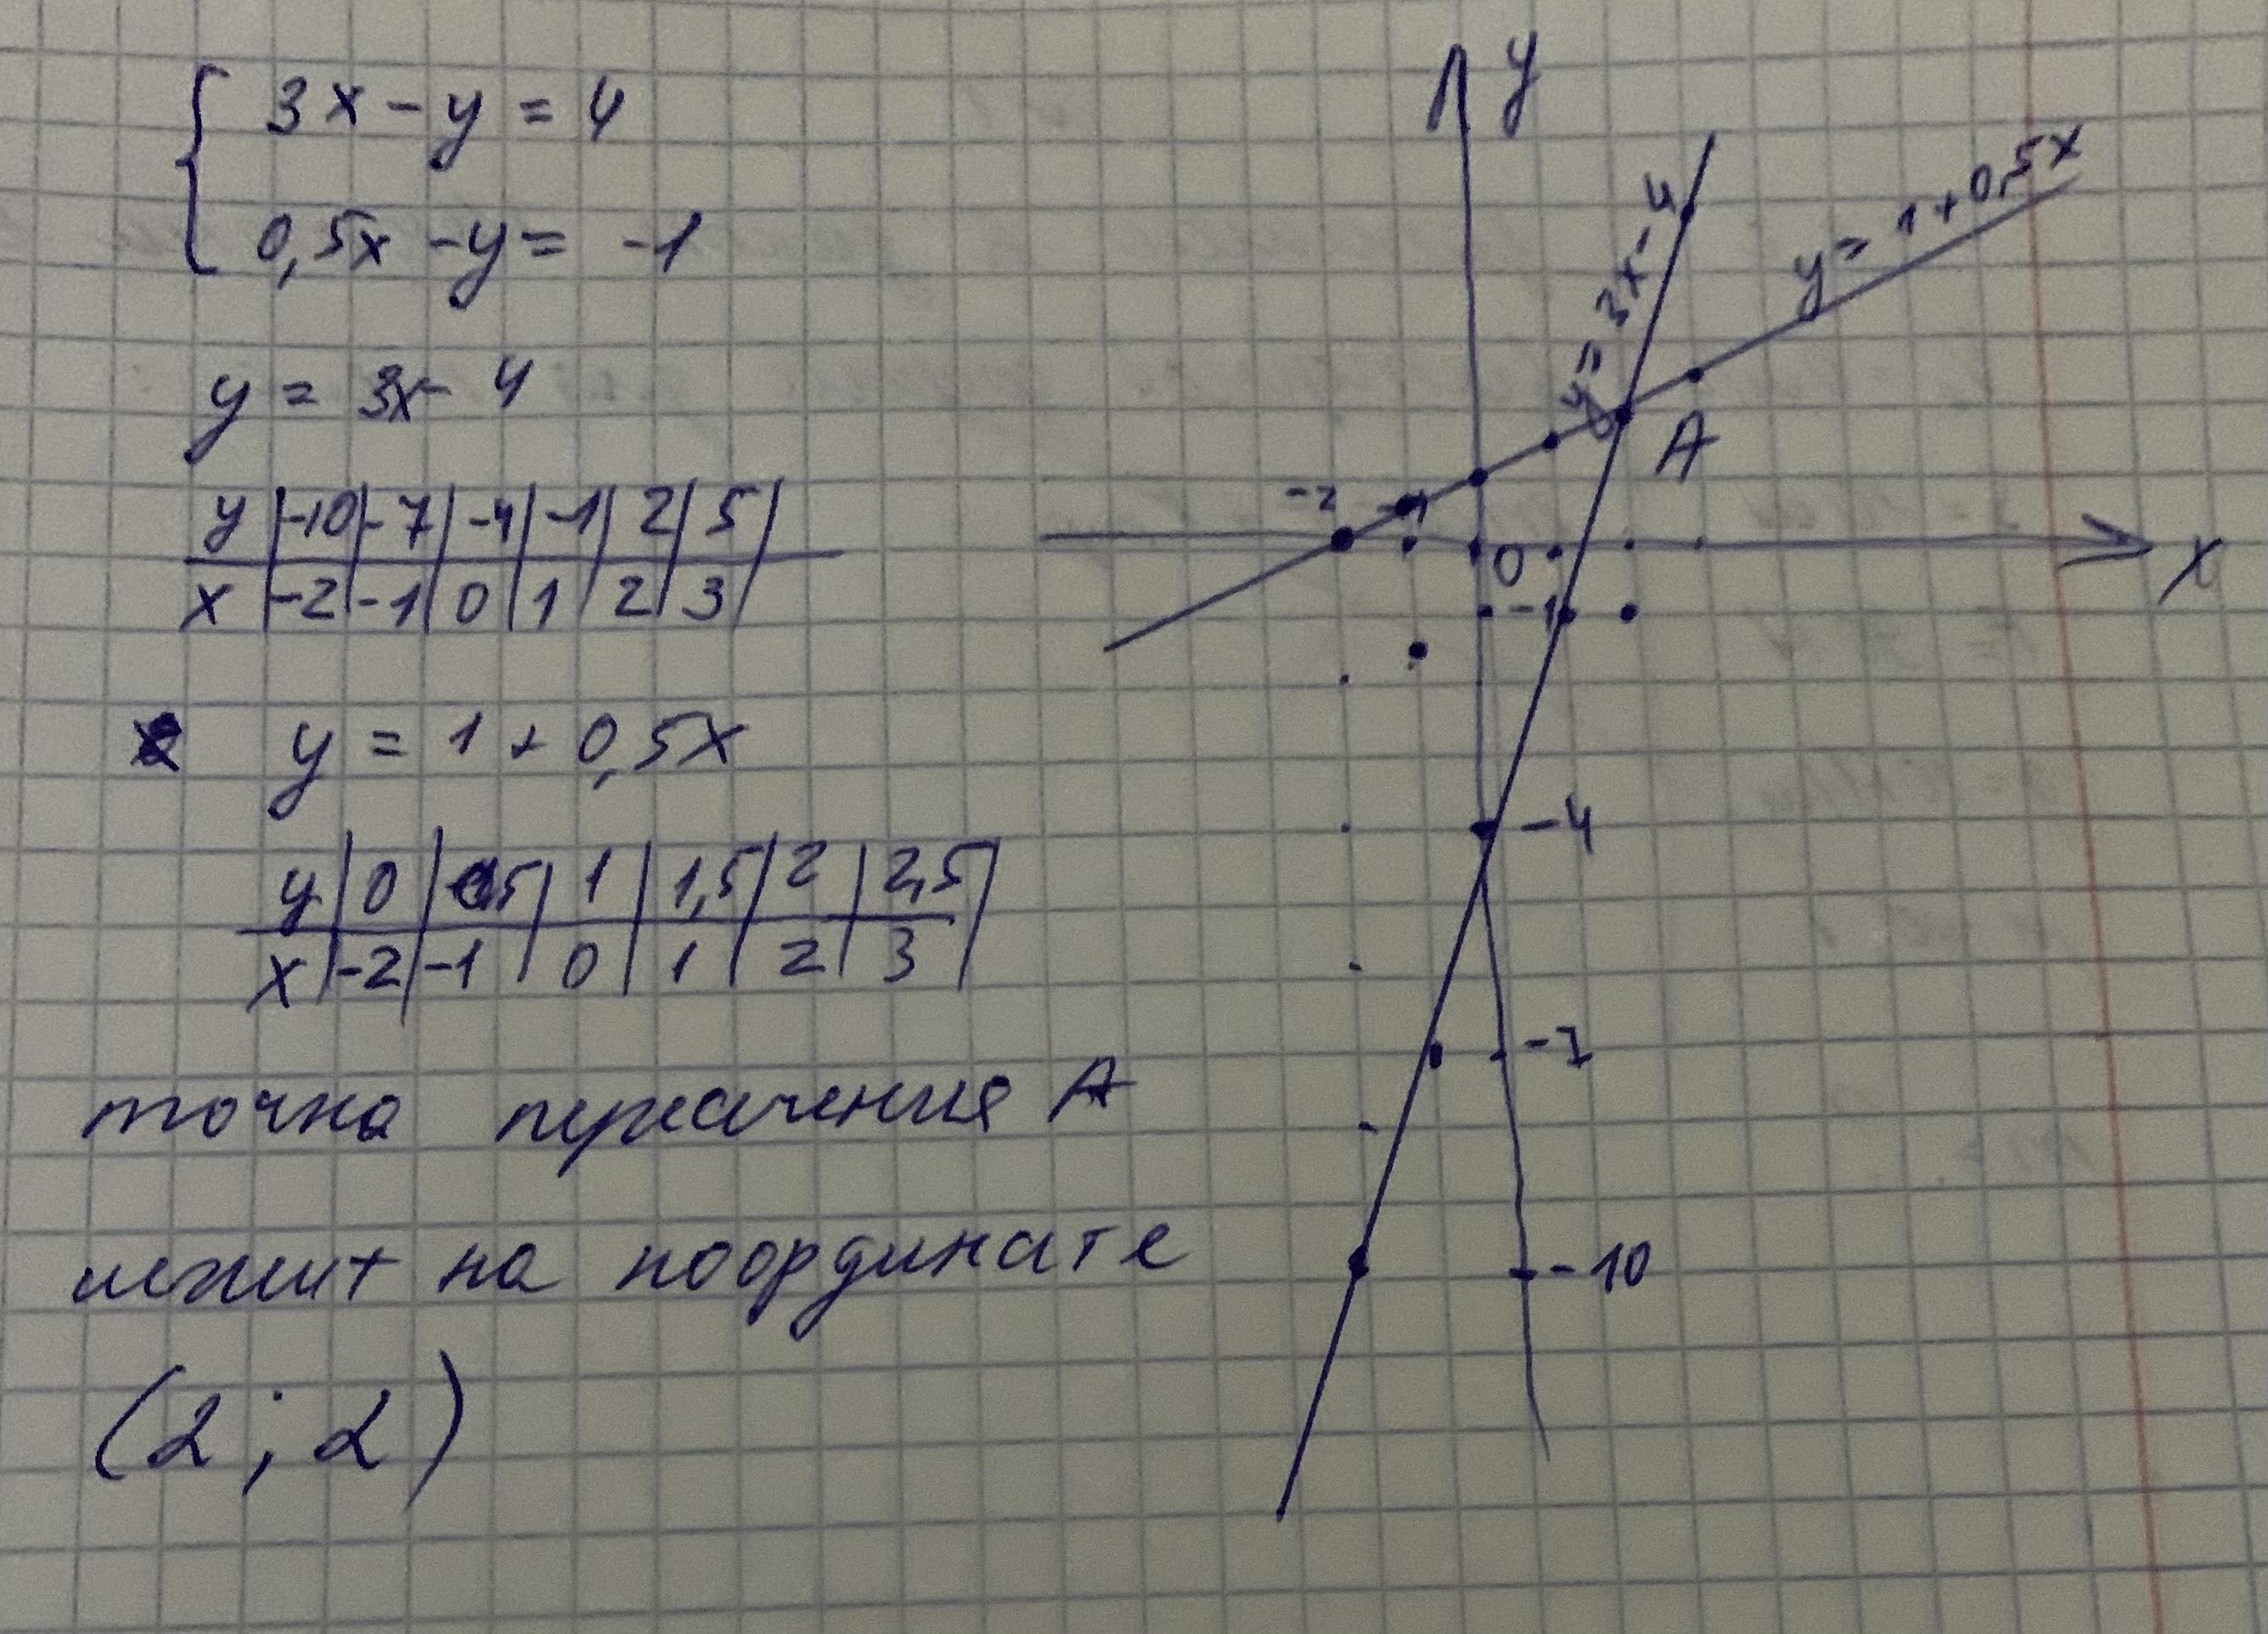 3x - y = 4
0,5x - y = -1
y = 3x - 4
y | -10 | -7 | -4 | -1 | 2 | 5 |
x | -2 | -1 | 0 | 1 | 2 | 3 |
y = 1 + 0,5x
y | 0 | 0,5 | 1 | 1,5 | 2 | 2,5 |
x | -2 | -1 | 0 | 1 | 2 | 3 |
точка А
лежит на координате
(2; 2)
y
y = 3x - 4
y = 1 + 0,5x
A
-2
-1
0
x
-1
-4
-7
-10